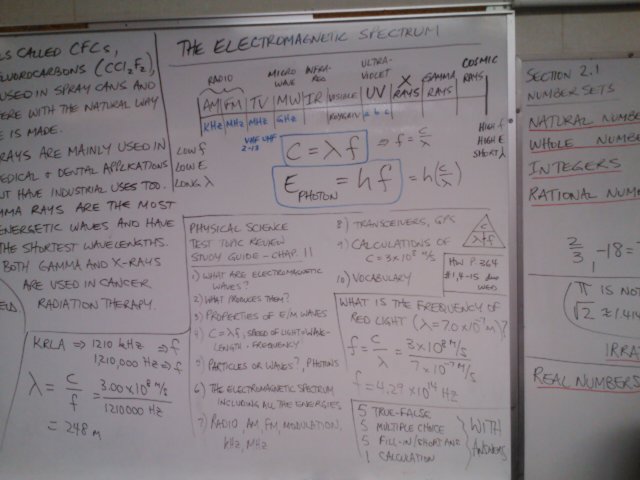 LS CALLED CFCs,
FLUOROCARBONS (CCl2F2),
USED IN SPRAY CANS AND
ERE WITH THE NATURAL WAY
E IS MADE.
RAYS ARE MAINLY USED IN
EDICAL + DENTAL APPLICATIONS
UT HAVE INDUSTRIAL USES TOO.
MMA RAYS ARE THE MOST
ENERGETIC WAVES AND HAVE
THE SHORTEST WAVELENGTHS.
BOTH GAMMA AND X-RAYS
ARE USED IN CANCER
RADIATION THERAPY.
KRLA ⇒ 1210 kHz ⇒ f
1210,000 Hz ⇒ f
λ = C/f = 3.00 × 10⁸ M/S / 1210000 Hz
= 248 m
THE ELECTROMAGNETIC SPECTRUM
RADIO MICRO WAVE INFRA-RED ULTRA-VIOLET X RAYS GAMMA RAYS COSMIC RAYS
AM FM TV MW IR VISIBLE UV
kHz MHz MHz GHz ROYGBIV a b c
VHF UHF
2-13
LOW f
LOW E
LONG λ
HIGH f
HIGH E
SHORT λ
C = λf ⇒ f = C/λ
E PHOTON = hf = h(C/λ)
PHYSICAL SCIENCE
TEST TOPIC REVIEW
STUDY GUIDE - CHAP. 11
1) WHAT ARE ELECTROMAGNETIC
WAVES?
2) WHAT PRODUCES THEM?
3) PROPERTIES OF E/M WAVES
4) C=λf, SPEED OF LIGHT=WAVE-
LENGTH · FREQUENCY
5) PARTICLES OR WAVES?, PHOTONS
6) THE ELECTROMAGNETIC SPECTRUM
INCLUDING ALL THE ENERGIES.
7) RADIO, AM, FM, MODULATION,
kHz, MHz
8) TRANSCEIVERS, GPS
9) CALCULATIONS OF
C = 3×10⁸ M/S
10) VOCABULARY
C
λ f
HW P. 364
#1, 4-15 due
WED
WHAT IS THE FREQUENCY OF
RED LIGHT (λ = 7.0 × 10⁻⁷ M)?
f = C/λ = 3 × 10⁸ M/S / 7 × 10⁻⁷ M/S
f = 4.29 × 10¹⁴ Hz
5 TRUE-FALSE
5 MULTIPLE CHOICE
5 FILL-IN/SHORT AND
1 CALCULATION
WITH
ANSWERS
SECTION 2.1
NUMBER SETS
NATURAL NUMBE
WHOLE NUMBE
INTEGERS
RATIONAL NUMBE
2/3, -18 =
π IS NO
√2 ≈ 1.41
IRRAT
REAL NUMBERS